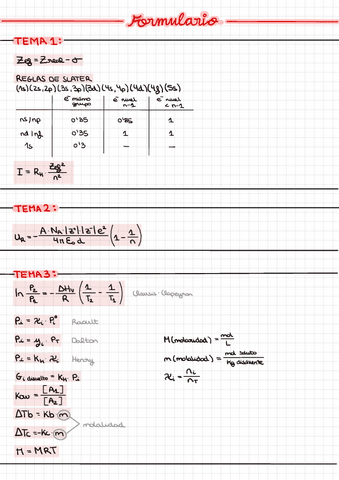 Formulario
TEMA 1:
Zef = Zreal - σ
REGLAS DE SLATER
(1s)(2s,2p)(3s,3p)(3d)(4s,4p)(4d)(4f)(5s)
e⁻ mismo grupo | e⁻ nivel n-1 | e⁻ nivel < n-1
ns/np | 0'35 | 0'85 | 1
nd/nf | 0'35 | 1 | 1
1s | 0'3 | — | —
I = R_H · Zef²/n²
TEMA 2:
U_R = - A·N_A|z⁺||z⁻|e²/4πE₀d (1 - 1/n)
TEMA 3:
ln P₂/P₁ = - ΔHv/R (1/T₂ - 1/T₁) Clausius-Clapeyron
P₁ = x_i · P_i° Raoult
P₁ = y_i · P_T Dalton
P₁ = K_H · x_i Henry
G_i disuelto = K_H · P₁
Kow = [A₁]/[A₂]
ΔTb = Kb m
ΔTc = -Kc m
molalidad
M = MRT
M (molaridad) = mol/L
m (molalidad) = mol soluto/kg disolvente
x_i = n_i/n_T